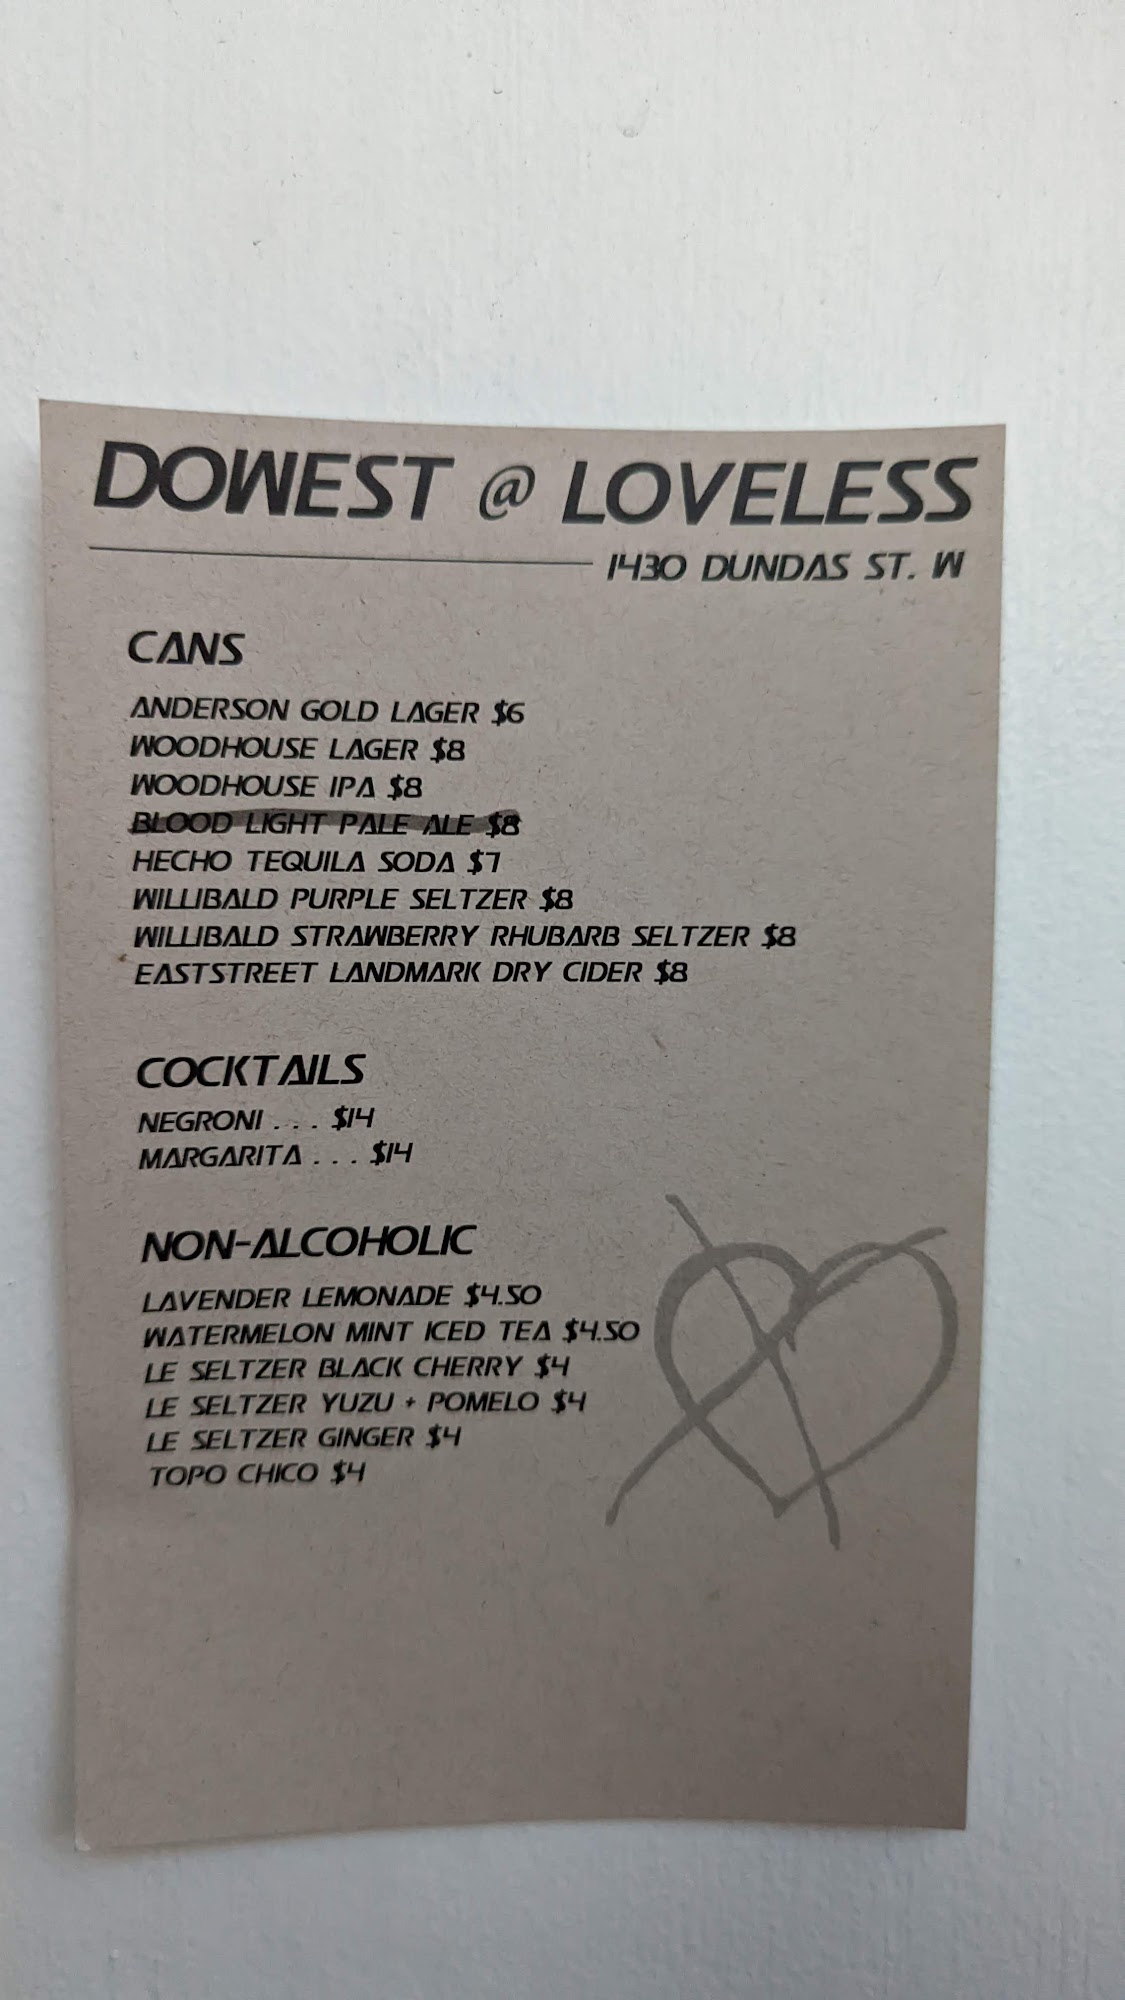 DOWEST @ LOVELESS
1430 DUNDAS ST. W
CANS
ANDERSON GOLD LAGER $6
WOODHOUSE LAGER $8
WOODHOUSE IPA $8
BLOOD LIGHT PALE ALE $8
HECHO TEQUILA SODA $7
WILLIBALD PURPLE SELTZER $8
WILLIBALD STRAWBERRY RHUBARB SELTZER $8
EASTSTREET LANDMARK DRY CIDER $8
COCKTAILS
NEGRONI . . . $14
MARGARITA . . . $14
NON-ALCOHOLIC
LAVENDER LEMONADE $4.50
WATERMELON MINT ICED TEA $4.50
LE SELTZER BLACK CHERRY $4
LE SELTZER YUZU + POMELO $4
LE SELTZER GINGER $4
TOPO CHICO $4